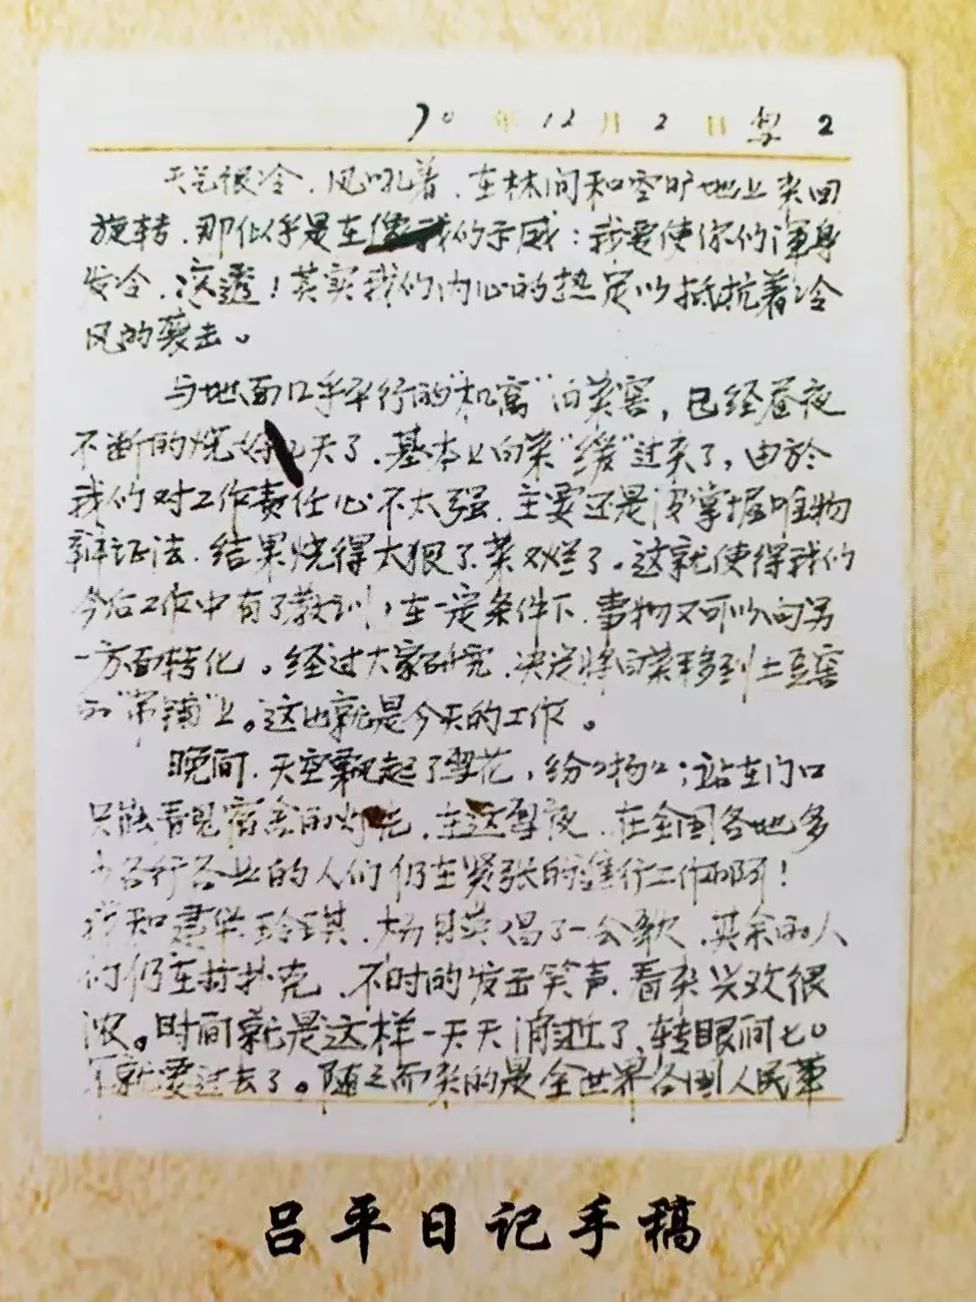 70年12月2日 星 2
天气很冷．风吼着．在林间和空旷地上来回
旋转．那似乎是在的示威：我要使你们浑身
发冷．凉透！其实我们内心的热足以抵抗着冷
风的袭击。
与地面几乎平行的"机窝"白菜窖，已经昼夜
不断的烧好几天了．基本上白菜"缓"过来了，由於
我们对工作责任心不太强．主要还是没掌握唯物
辩证法．结果烧得太狠了．菜又烂了。这就使得我们
今后工作中有了教训，在一定条件下．事物又可以向另
一方面转化。经过大家研究．决定将白菜移到土豆窖
的"吊铺"上。这也就是今天的工作。
晚间．天空飘起了雪花，纷〻扬〻；站在门口
只能看见宿舍的灯光．在这雪夜．在全国各地多
少各行各业的人们仍在紧张的进行工作啊！
我和建华 玲琪．杨月英唱了一会歌．其余的人
们仍在打扑克．不时的发出笑声．看来兴致很
浓。时间就是这样一天天消逝了．转眼间七〇
年就要过去了。随之而来的是全世界各国人民革
吕平日记手稿